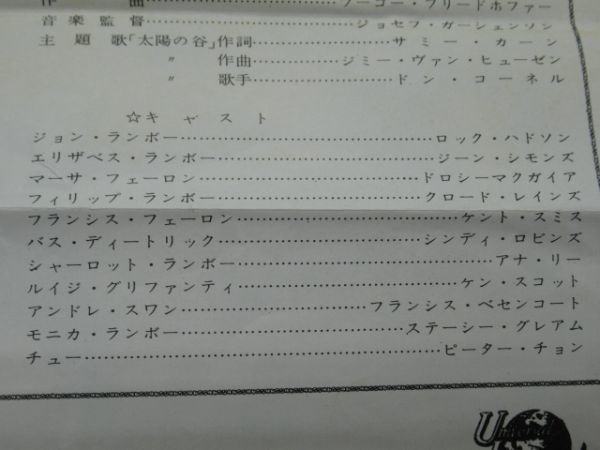 作曲……………ーゴー・フリードホファー
音楽監督……………ジョセフ・ガーシェンソン
主題歌「太陽の谷」作詞……………サミー・カーン
〃 作曲……………ジミー・ヴァン・ヒューゼン
〃 歌手……………ドン・コーネル
☆キャスト
ジョン・ランボー……………ロック・ハドソン
エリザベス・ランボー……………ジーン・シモンズ
マーサ・フェーロン……………ドロシーマクガイア
フィリップ・ランボー……………クロード・レインズ
フランシス・フェーロン……………ケント・スミス
バス・ディートリック……………シンディ・ロビンズ
シャーロット・ランボー……………アナ・リー
ルイジ・グリファンティ……………ケン・スコット
アンドレ・スワン……………フランシス・ベセンコート
モニカ・ランボー……………ステーシー・グレアム
チュー……………ピーター・チョン
Universal